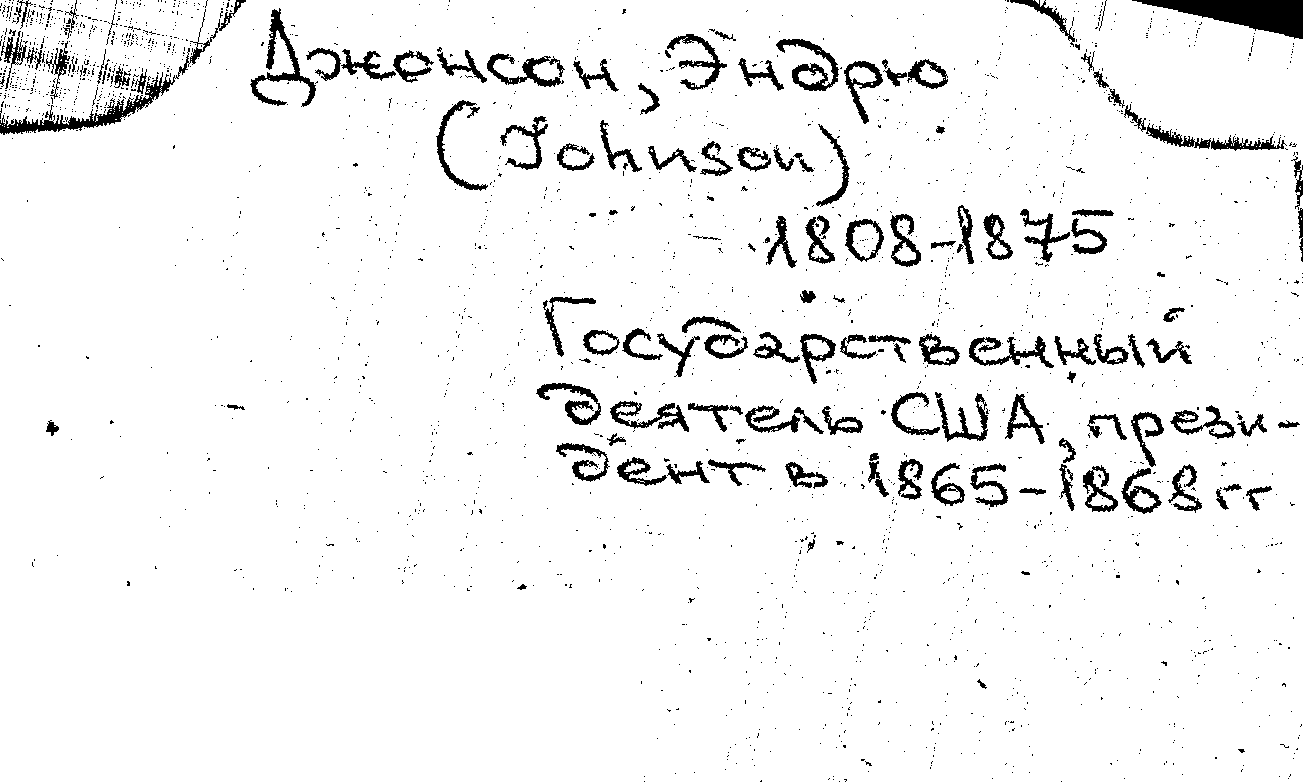 Джонсон, Эндрю
(Johnson)
1808-1875
Государственный
деятель США, прези-
дент в 1865-1868 гг